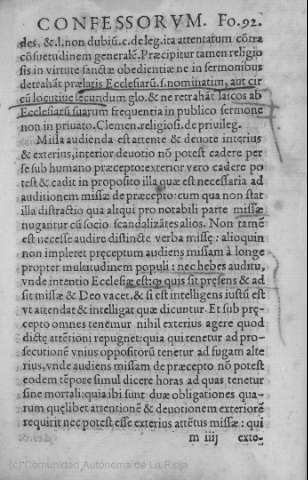 CONFESSORVM. Fo.92.
des, &.l.non dubiũ.c.de leg.ita attentatum cõtra
cõsuetudinem generalẽ. Præcipitur tamen religio
sis in virtute sanctæ obedientiæ ne in sermonibus
detrahãt prælatis Ecclesiarũ.s.nominatim, aut cir
cũ locutiue secundum glo.& ne retrahãt laicos ab
Ecclesiarũ suarum frequentia in publico sermone
non in priuato. Clemen.religiosi.de priuileg.
Missa audienda est attente & deuote interius
& exterius, interior deuotio nõ potest cadere per
se sub humano præcepto: exterior vero cadere po
test & cadit in proposito illa quæ est necessaria ad
auditionem missæ de præcepto: cum qua non stat
illa distractio qua aliqui pro notabili parte missæ
nugantur cũ socio scandalizãtes alios. Non tamẽ
est necesse audire distincte verba missę: alioquin
non impleret præceptum audiens missam à longe
propter multitudinem populi: nec hebes auditu,
vnde intentio Ecclesiæ est: q quis sit præsens & ad
sit missæ & Deo vacet, & si est intelligens iustũ est
vt attendat & intelligat quæ dicuntur. Et sub præ
cepto omnes tenemur nihil exterius agere quod
dictę attẽtioni repugnet: quia qui tenetur ad pro-
secutionẽ vnius oppositorũ tenetur ad fugam alte
rius, vnde audiens missam de præcepto nõ potest
eodem tẽpore simul dicere horas ad quas tenetur
sine mortali: quia ibi sunt duæ obligationes qua-
rum quęlibet attentionẽ & deuotionem exteriorẽ
requirit nec potest esse exterius attẽtus missæ: qui
m iiij exte-
(c) Comunidad Autónoma de La Rioja